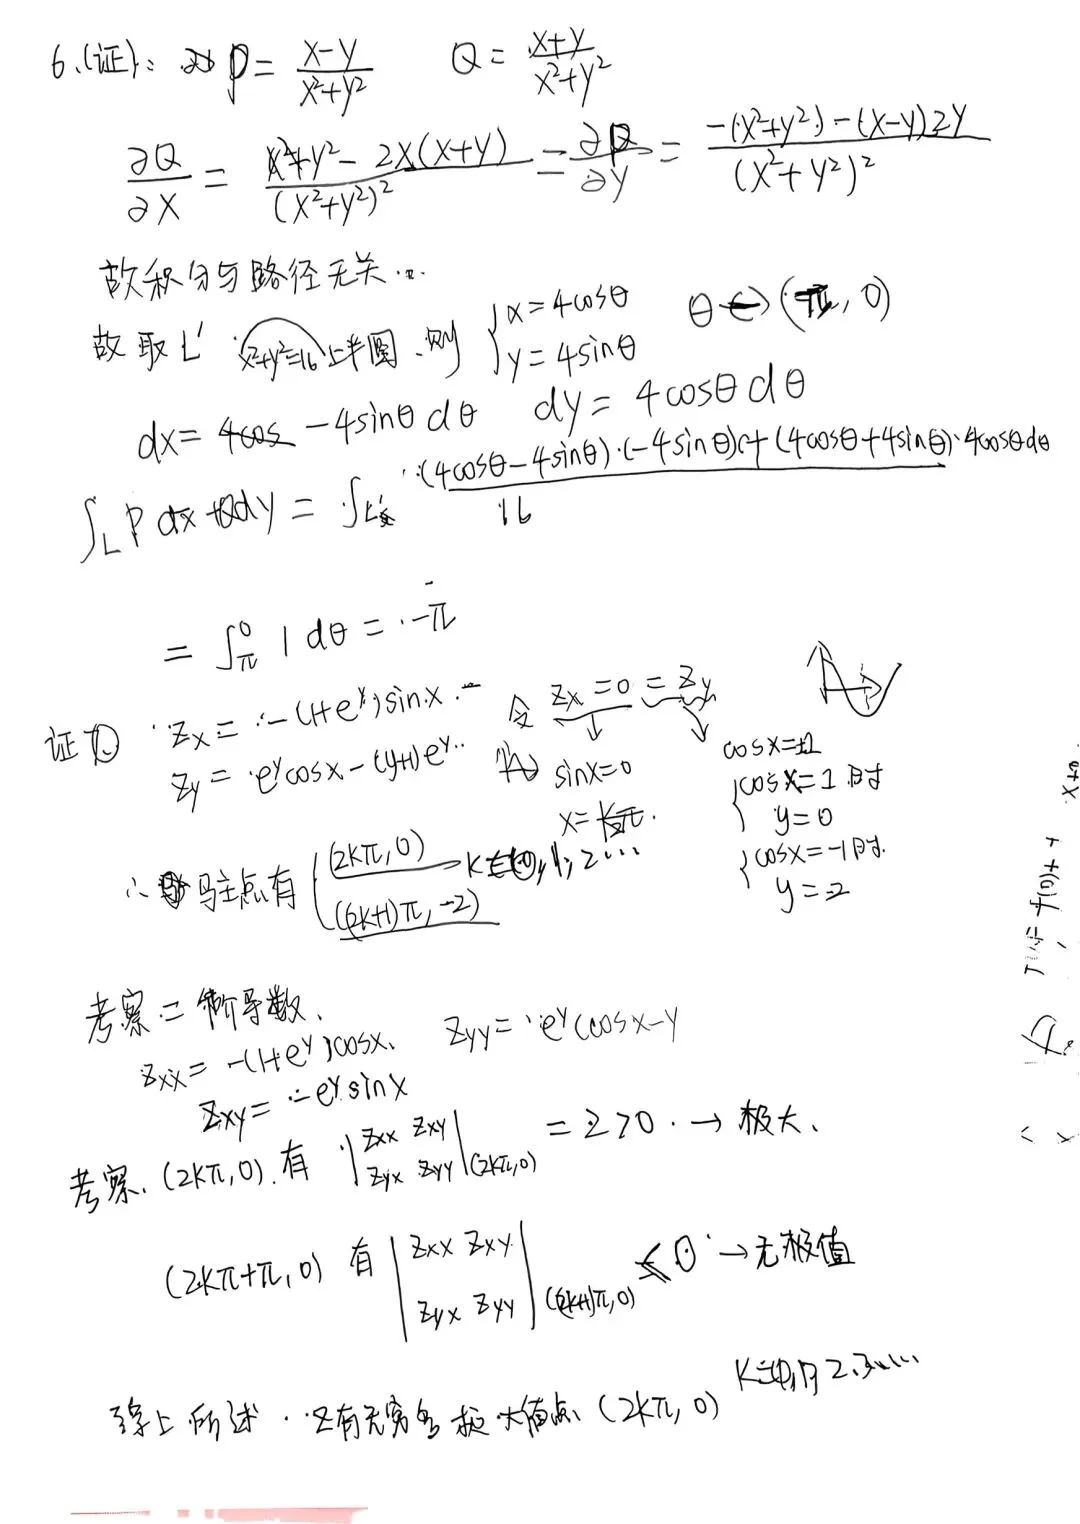 6.(证): P = \frac{x-y}{x²+y²} Q = \frac{x+y}{x²+y²}
\frac{∂Q}{∂x} = \frac{x²+y²-2x(x+y)}{(x²+y²)²} = \frac{∂P}{∂y} = \frac{-(x²+y²)-(x-y)2y}{(x²+y²)²}
故积分与路径无关...
故取L' x²+y²=16上半圆.则 { x=4cosθ θ (π, 0)
y=4sinθ
dx= -4sinθdθ dy=4cosθdθ
∫_L Pdx+Qdy = ∫_{L'} \frac{(4cosθ-4sinθ)·(-4sinθ)+(4cosθ+4sinθ)·4cosθdθ}{16}
= ∫_π^0 1dθ = -π
证 Zx = -(1+e^y)sinx 令 Zx=0=Zy
Zy = e^ycosx-(y+1)e^y
sinx=0
x=kπ.
cosx=±1
{ cosx=1时
y=0
{ cosx=-1时.
y=-2
∴ 驻点有 { (2kπ,0) k=0,1,2...
((2k+1)π,-2)
考察二阶导数.
Zxx = -(1+e^y)cosx. Zyy = e^y(cosx-y
Zxy = -e^ysinx
考察.(2kπ,0).有 |Zxx Zxy Zyx Zyy|(2kπ,0) = 2>0.→极大.
(2kπ+π,0)有 |Zxx Zxy Zyx Zyy|((2k+1)π,0) < 0 →无极值
综上所述.z有无穷多极大值点(2kπ,0) k=0,1,2,3....